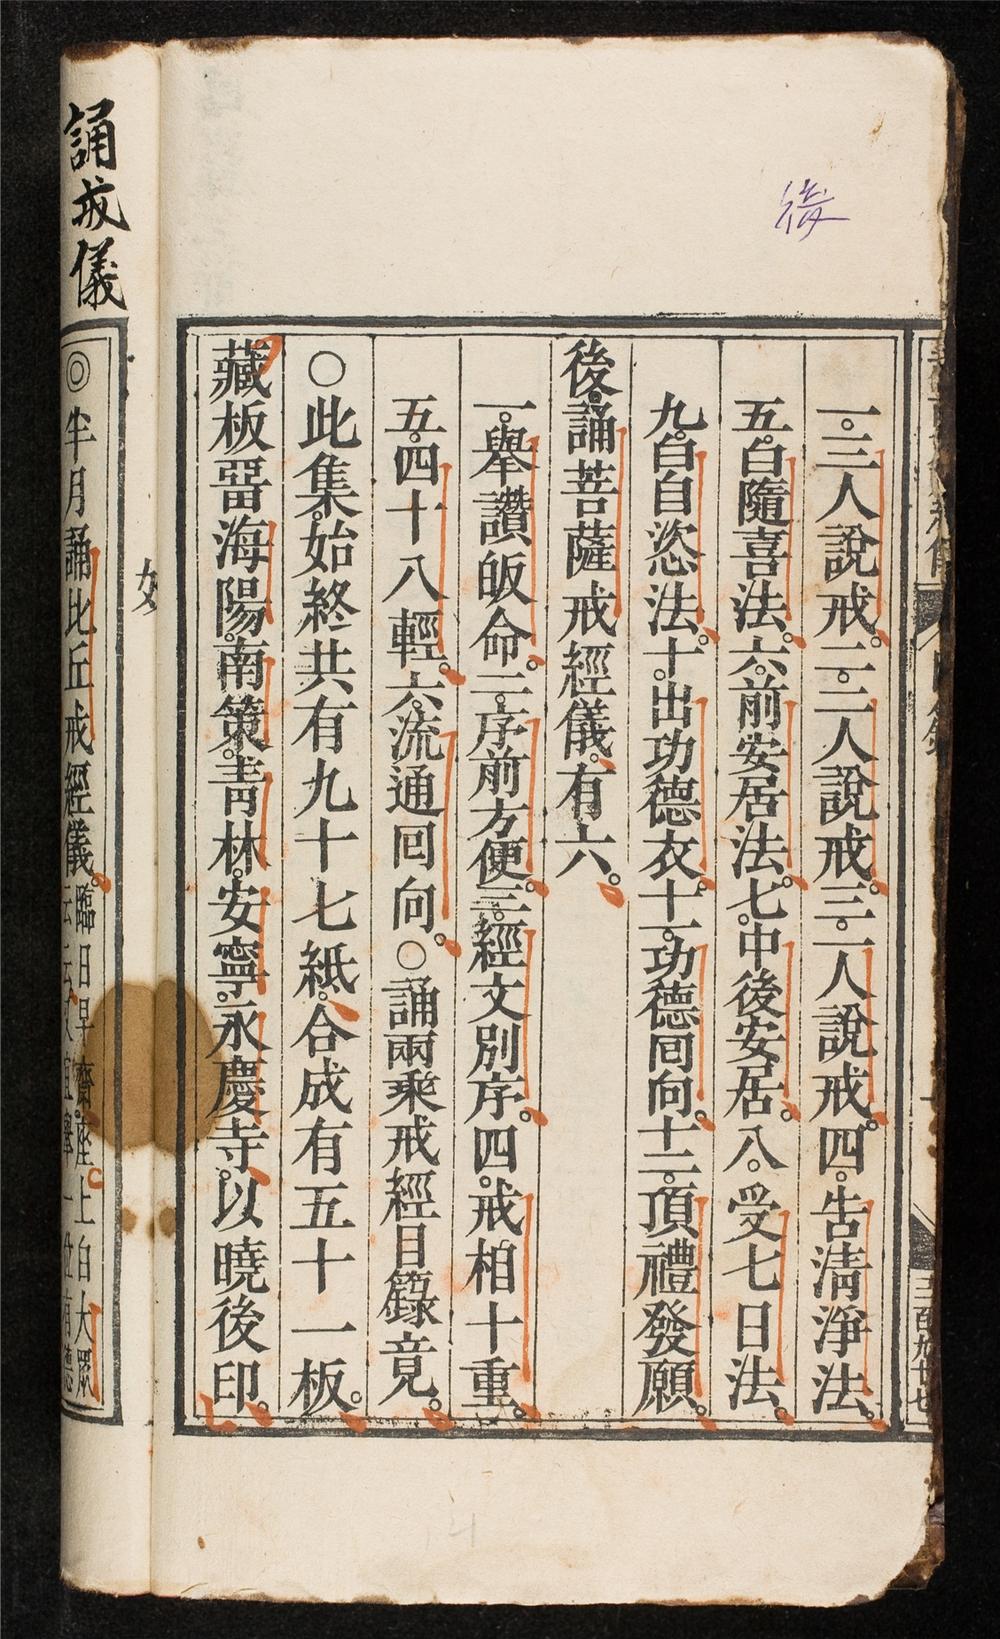 後
一。三人說戒。二。二人說戒。三。一人說戒。四。告清淨法。
五。白隨喜法。六。前安居法。七。中後安居。八。受七日法。
九。白自恣法。十。出功德衣。十一。功德回向。十二。頂禮發願。
後。誦菩薩戒經儀。有六。
一。舉讚皈命。二。序前方便。三。經文別序。四。戒相十重。
五。四十八輕。六。流通回向。○誦兩乘戒經目錄竟。
○此集。始終共有九十七紙。合成有五十一板。
藏板畱海陽。南策。青林。安寧。永慶寺。以曉後印。
三百九廿七
誦戒儀
◎半月誦比丘戒經儀。
臨日早齋。座上白大眾